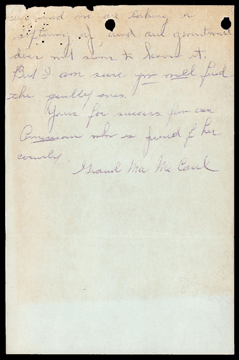 and are taking a
of and our government
does not seem to know it.
But I am sure you will find
the guilty ones.
Yours for success from an
American who is friend to her
country.
Grand Ma Mc